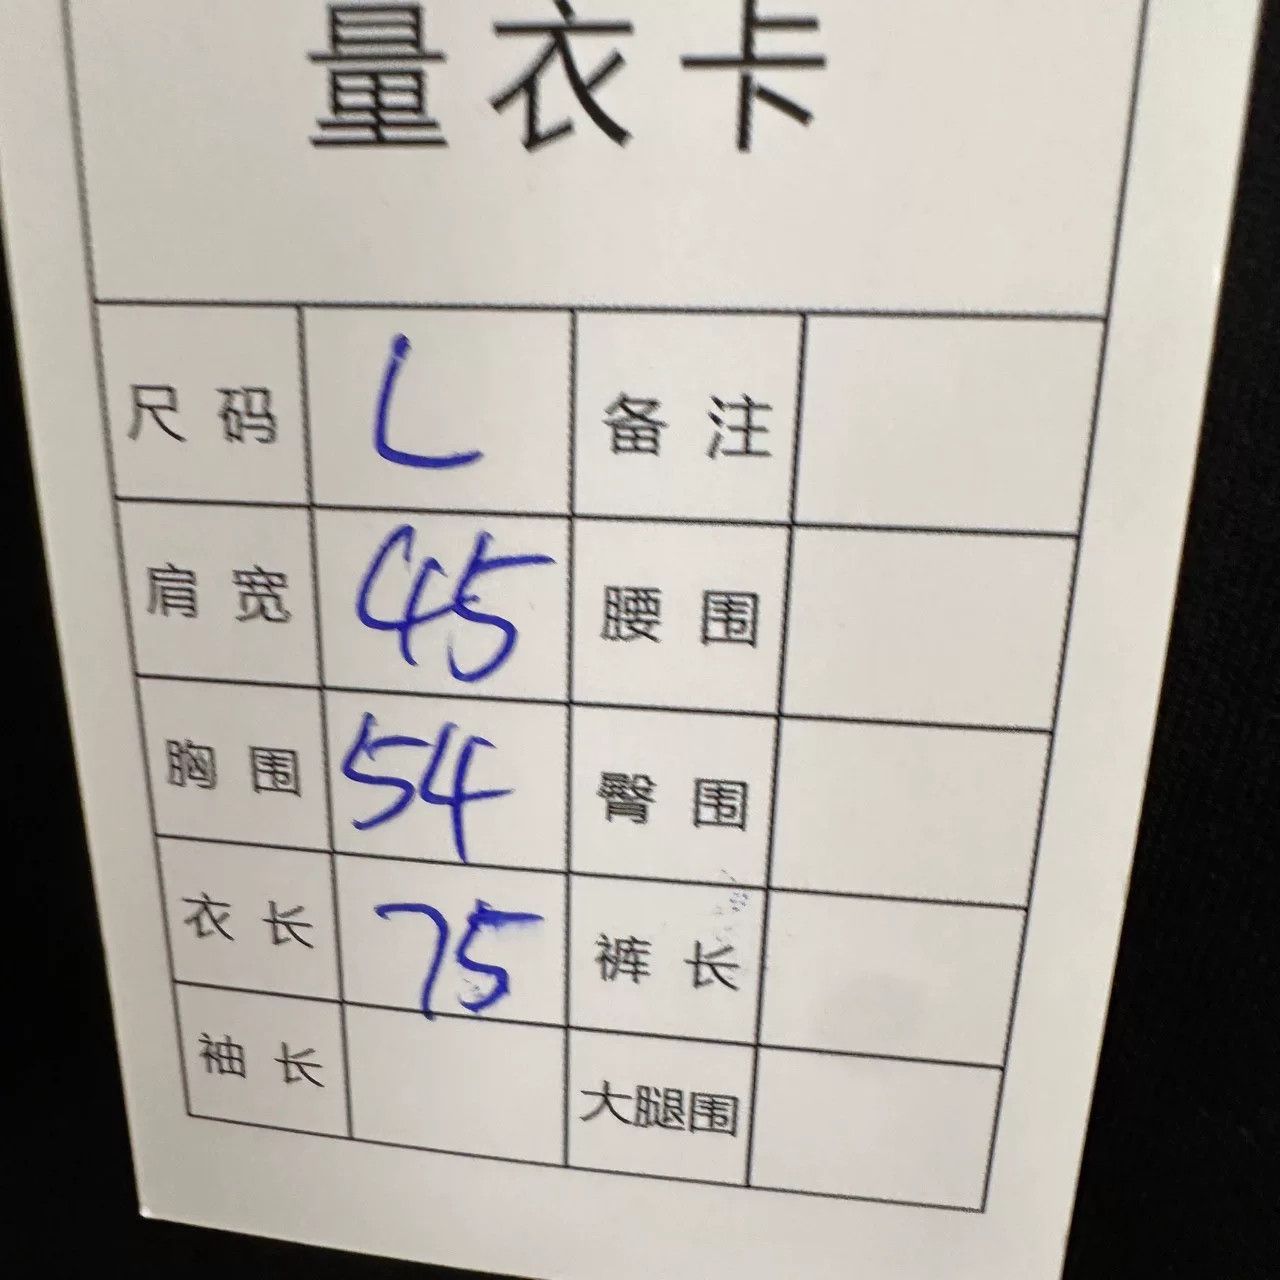 量衣卡
尺码 L 备注
肩宽 45 腰围
胸围 54 臀围
衣长 75 裤长
袖长 大腿围